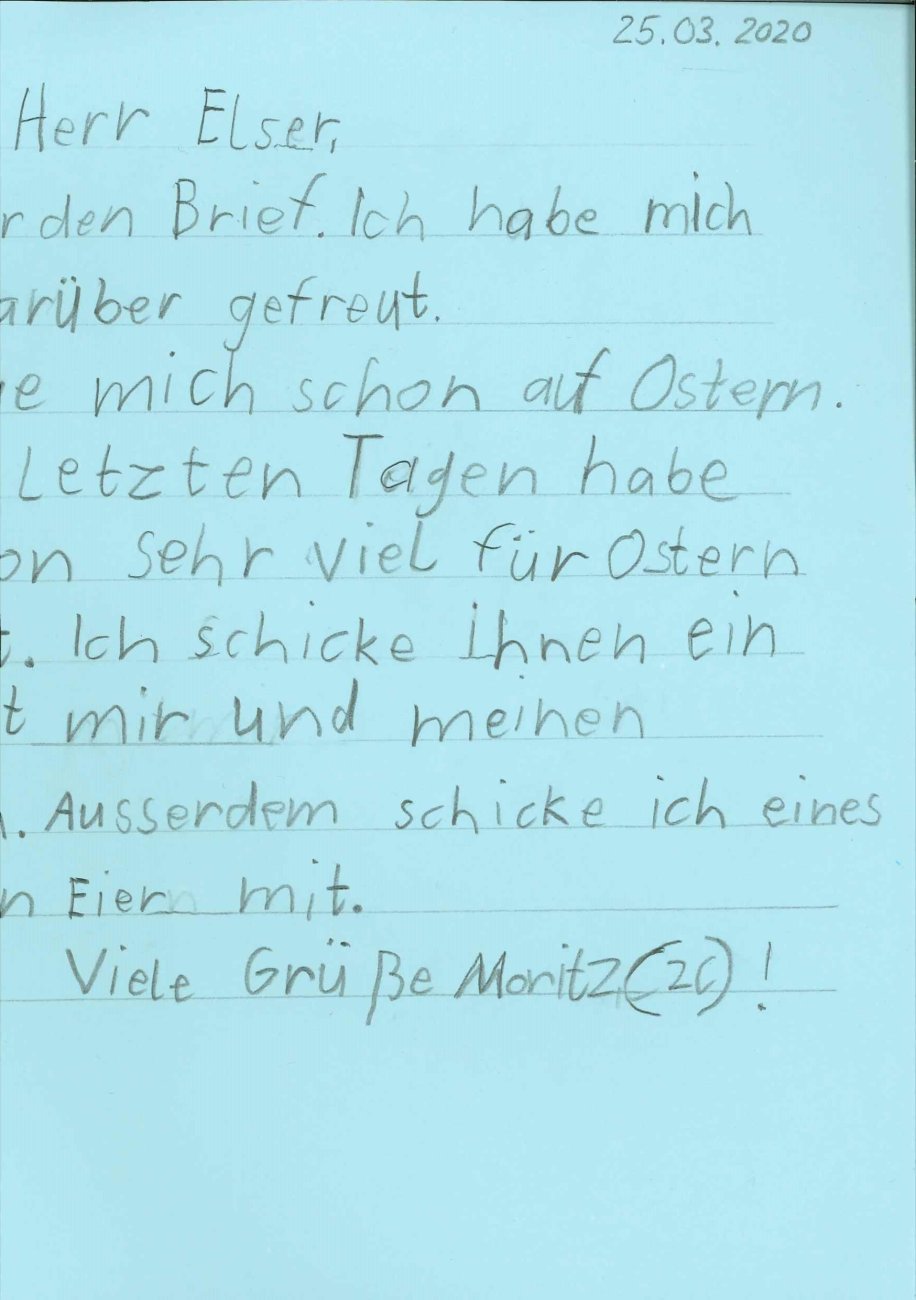 25.03.2020
Herr Elser,
r den Brief. Ich habe mich
arüber gefreut.
e mich schon auf Ostern.
Letzten Tagen habe
on sehr viel für Ostern
t. Ich schicke Ihnen ein
t mir und meinen
. Ausserdem schicke ich eines
n Eier mit.
Viele Grüße Moritz (2c)!